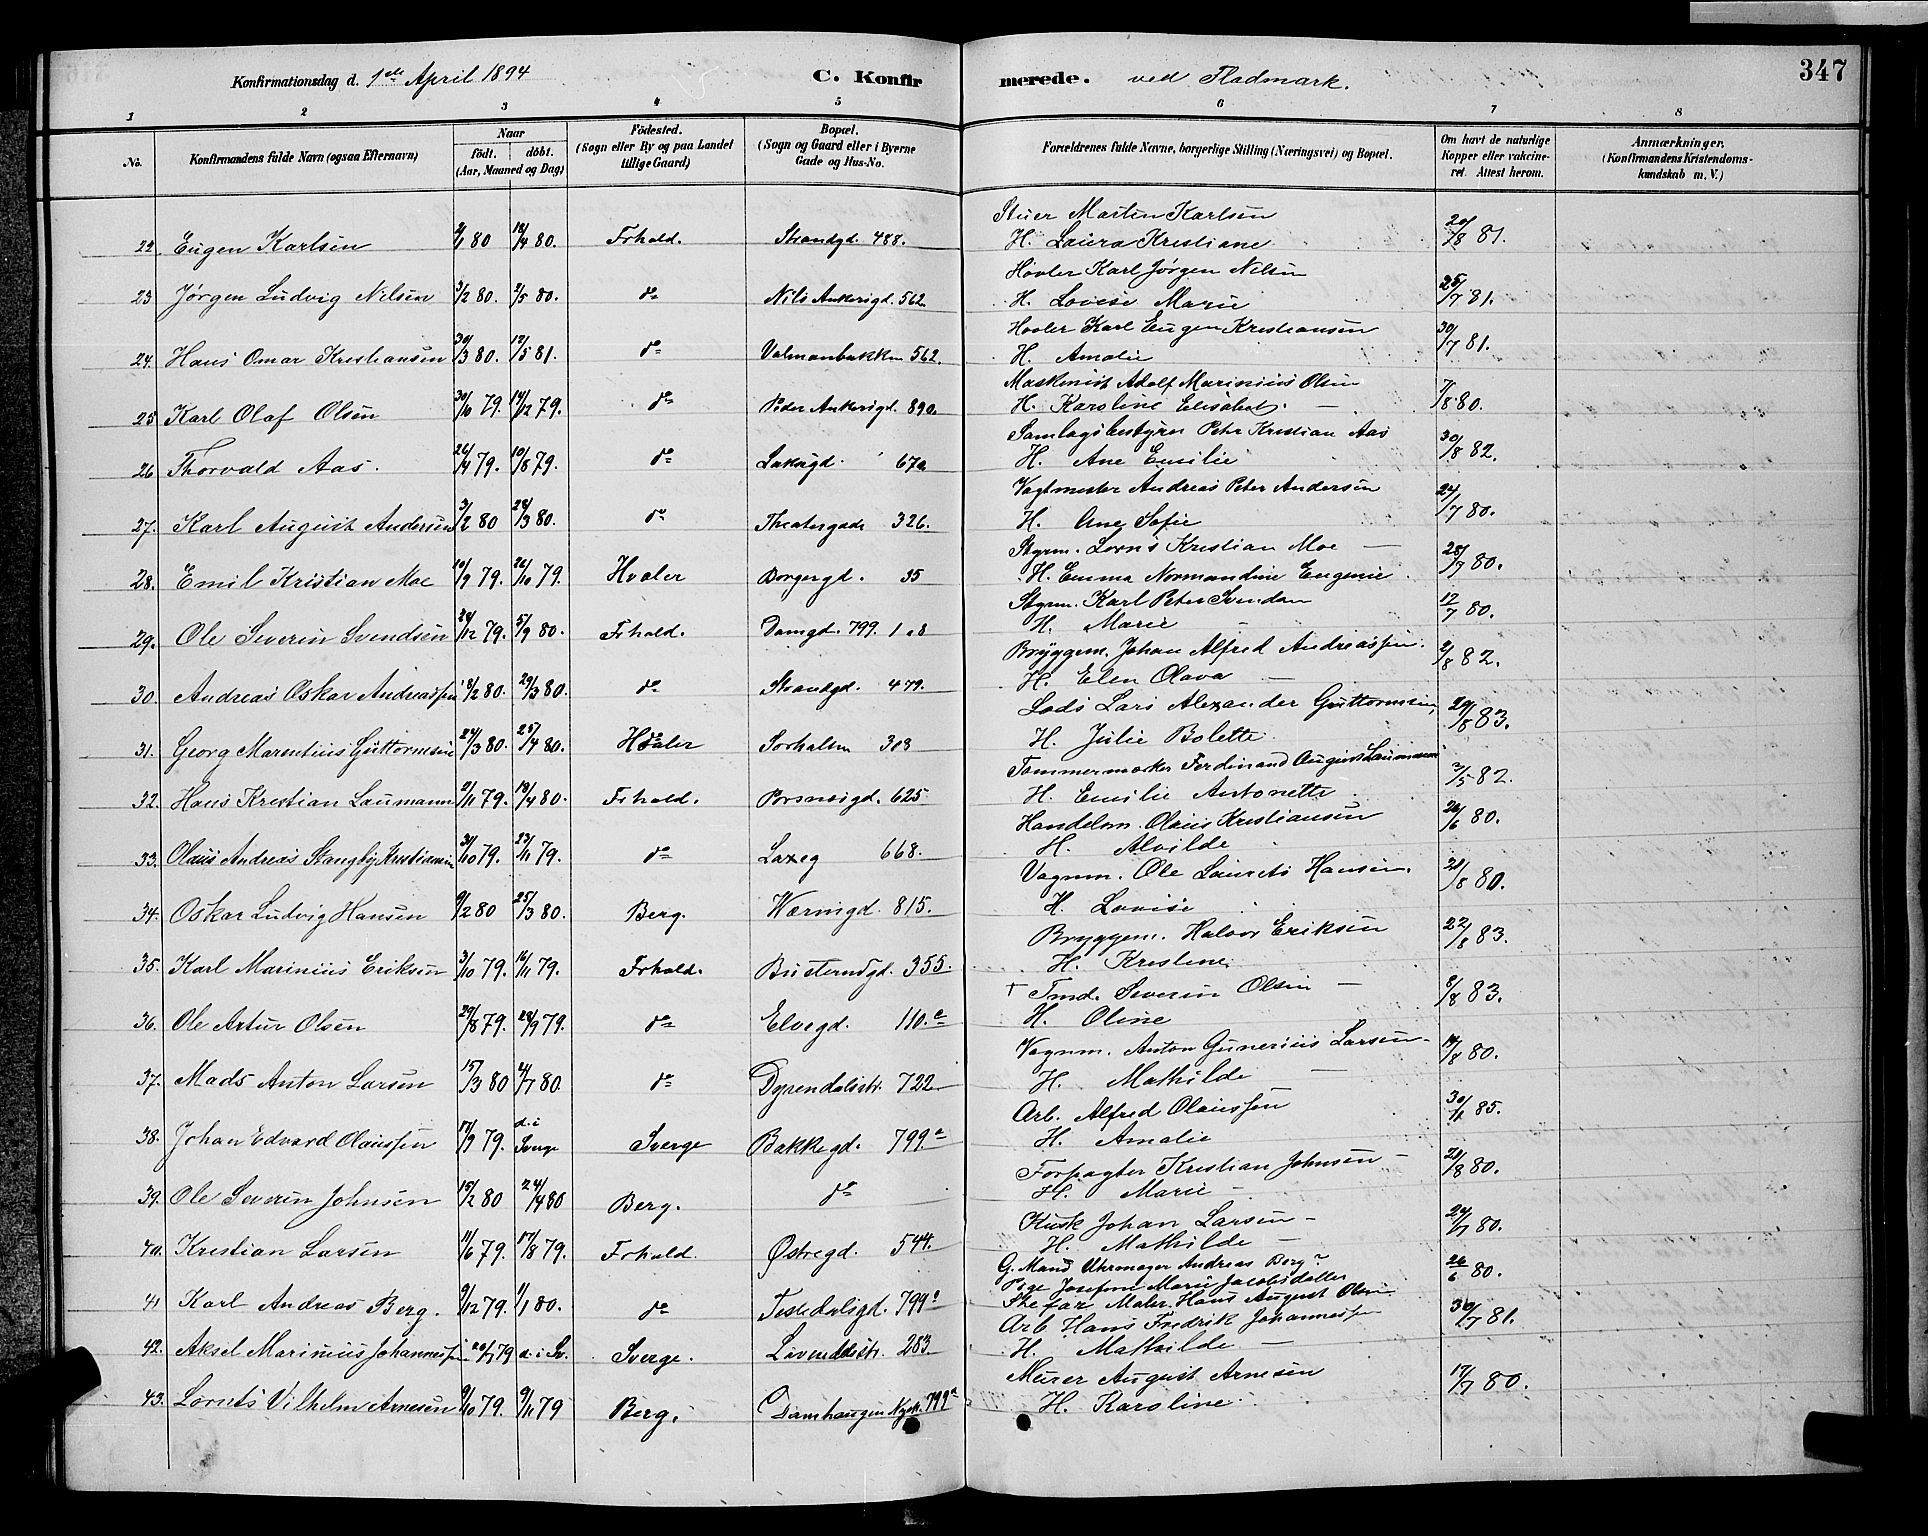 Konfirmationsdag d. 1ste April 1894 C. Konfir merede. ved Fladmark. 347
1 2 3 4 5 6 7 8
No. Konfirmandens fulde Navn (ogsaa Efternavn) Naar født. døbt. (Aar, Maaned og Dag) Födested. (Sogn eller By og paa Landet tillige Gaard) Bopæl. (Sogn og Gaard eller i Byerne Gade og Hus-No. Forældrenes fulde Navne, borgerlige Stilling (Næringsvei) og Bopæl. Om havt de naturlige Kopper eller vakcineret. Attest herom. Anmærkninger. (Konfirmandens Kristendomskundskab m. V.)
22. Eugen Karlsen 2/1 80 18/4 80. Frhald. Strandgd. 488. Stuer Martin Karlsen 20/8 81.
H. Laura Kristiane
23 Jørgen Ludvig Nilsen 3/2 80. 2/5 80. do Nils Ankersgd. 562 Høvler Karl Jørgen Nilsen 25/7 81.
H. Lovise Marie
24. Hans Omar Kristiansen 30/3 80. 12/5 81. do Valmanbakken 562. Høvler Karl Eugen Kristiansen 30/7 81.
H. Amalie
25 Karl Olaf Olsen 30/10 79. 14/12 79. do Peder Ankersgd. 890. Maskinist Adolf Marinius Olsen 7/8 80.
H. Karoline Elisabet
26 Thorvald Aas. 26/4 79. 10/8 79. do Laksegd. 67a Samlagsbestyrer Peter Kristian Aas 30/8 82.
H. Ane Emilie
27. Karl August Andersen 3/2 80 28/3 80. do Theatergade 326. Vagtmester Andreas Peter Andersen 24/7 80.
H. Ane Sofie
28. Emil Kristian Moe 10/9 79. 26/10 79. Hvaler Borgergd. 35 Styrm. Lorns Kristian Moe 28/7 80.
H. Emma Normandine Eugenie
29. Ole Severin Svendsen 24/12 79. 5/9 80. Frhald. Damgd. 799. 1 o 8 Styrm. Karl Peter Svendsen 12/7 80.
H. Marie
30. Andreas Oskar Andreassen 8/2 80. 29/3 80. do Strandgd. 479. Bryggem. Johan Alfred Andreassen. 2/8 82.
H. Elen Olava
31. Georg Marentius Guttormsen 24/3 80. 25/4 80. Hvaler Sørhalsen 303 Lods Lars Alexander Guttormsen, 29/8 83.
H. Julie Bolette
32. Hans Kristian Laumann 2/11 79. 18/4 80. Frhald. Porsnesgd. 625 Tømmermærker Ferdinand August Laumann 3/5 82.
H. Emilie Antonette
33. Olaus Andreas Stangby Kristiansen 31/10 79. 23/11 79. do Laxeg 668. Handelsm. Olaus Kristiansen 26/6 80.
H. Alvilde
34. Oskar Ludvig Hansen 9/2 80 25/3 80. Berg. Wærnsgd. 815. Vognm. Ole Laurits Hansen. 21/8 80.
H. Lovise
35. Karl Marinius Eriksen 3/10 79. 16/11 79. Frhald. Busterudgd. 355. Bryggem. Halvor Eriksen 22/8 83.
H. Kristine
36. Ole Artur Olsen 29/8 79. 28/9 79. do Elvegd. 110.c † Tmd. Severin Olsen 8/8 83.
H. Oline
37. Mads Anton Larsen 15/3 80 24/7 80. do Dyrendalsstr. 722 Vognm. Anton Gunerius Larsen 14/8 80.
H. Mathilde
38. Johan Edvard Olaussen 17/9 79. d. i Sverge Sverge Bakkegd. 799a Arb. Alfred Olaussen 30/1 85.
H. Amalie
39. Ole Severin Johnsen 15/2 80 24/4 80 Berg. do Forpagter Kristian Johnsen 21/8 80.
H. Marie
40. Kristian Larsen 11/6 79. 17/8 79. Frhald. Østregd. 544. Kusk Johan Larsen 24/7 80.
H. Mathilde
41 Karl Andreas Berg. 9/12 79. 1/1 80. do Tistedalsgd. 799a G. Mand Uhrmager Andreas Berg 26/6 80.
Pige Josefine Marie Jacobsdatter
Stefar Maler Hans August Olsen
42. Aksel Marinius Johannessen 20/7 79 d. i Sv. Sverge. 283 Arb. Hans Fredrik Johannessen 30/7 81.
H. Mathilde
43. Lornts Vilhelm Arnesen 9/10 79. 9/11 79 Berg. Damhaugen 799a Murer August Arnesen 17/7 80.
H. Karoline